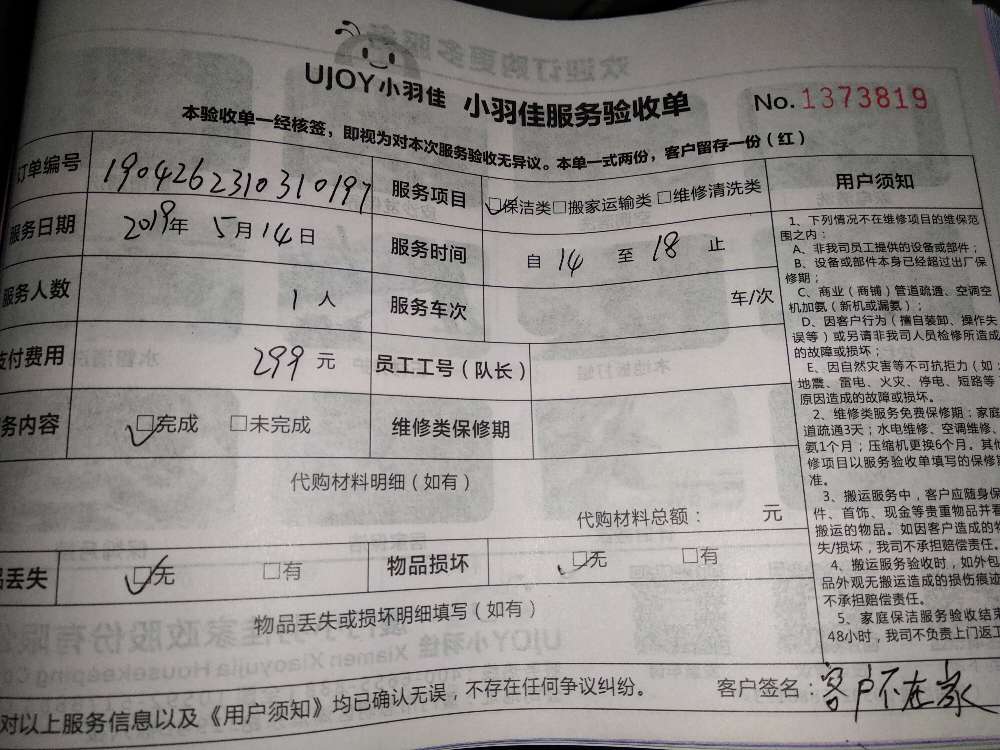 UJOY小羽佳 小羽佳服务验收单 No.1373819
本验收单一经核签，即视为对本次服务验收无异议。本单一式两份，客户留存一份（红）
订单编号 1904262310310197 服务项目 □保洁类□搬家运输类□维修清洗类
服务日期 2019年 5月14日 服务时间 自 14 至 18 止
服务人数 1 人 服务车次 车/次
支付费用 299 元 员工工号（队长）
务内容 □完成 □未完成 维修类保修期
代购材料明细（如有）
代购材料总额： 元
品丢失 □无 □有 物品损坏 □无 □有
物品丢失或损坏明细填写（如有）
对以上服务信息以及《用户须知》均已确认无误，不存在任何争议纠纷。 客户签名：客户不在家
用户须知
1、下列情况不在维修项目的维保范
围之内：
A、非我司员工提供的设备或部件；
B、设备或部件本身已经超过出厂保
修期；
C、商业（商铺）管道疏通、空调空
机加氨（新机或漏氨）；
D、因客户行为（擅自装卸、操作失
误等）或另请非我司人员检修所造成
的故障或损坏；
E、因自然灾害等不可抗拒力（如：
地震、雷电、火灾、停电、短路等
原因造成的故障或损坏。
2、维修类服务免费保修期：家庭
道疏通3天；水电维修、空调维修、
氨1个月；压缩机更换6个月。其他
修项目以服务验收单填写的保修期
准。
3、搬运服务中，客户应随身保
件、首饰、现金等贵重物品并看
搬运的物品。如因客户造成的物
失/损坏，我司不承担赔偿责任。
4、搬运服务验收时，如外包
品外观无搬运造成的损伤痕迹
不承担赔偿责任。
5、家庭保洁服务验收结束
48小时，我司不负责上门返工